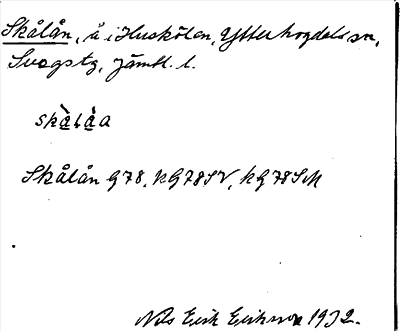 Skålån, å i Huskölen, Ytterhogdals sn,
Svegs tg, Jämtl. l.
skå̀lå̀a
Skålån G78, kG78SV, kG78SM
Nils Erik Eriksson 1932.